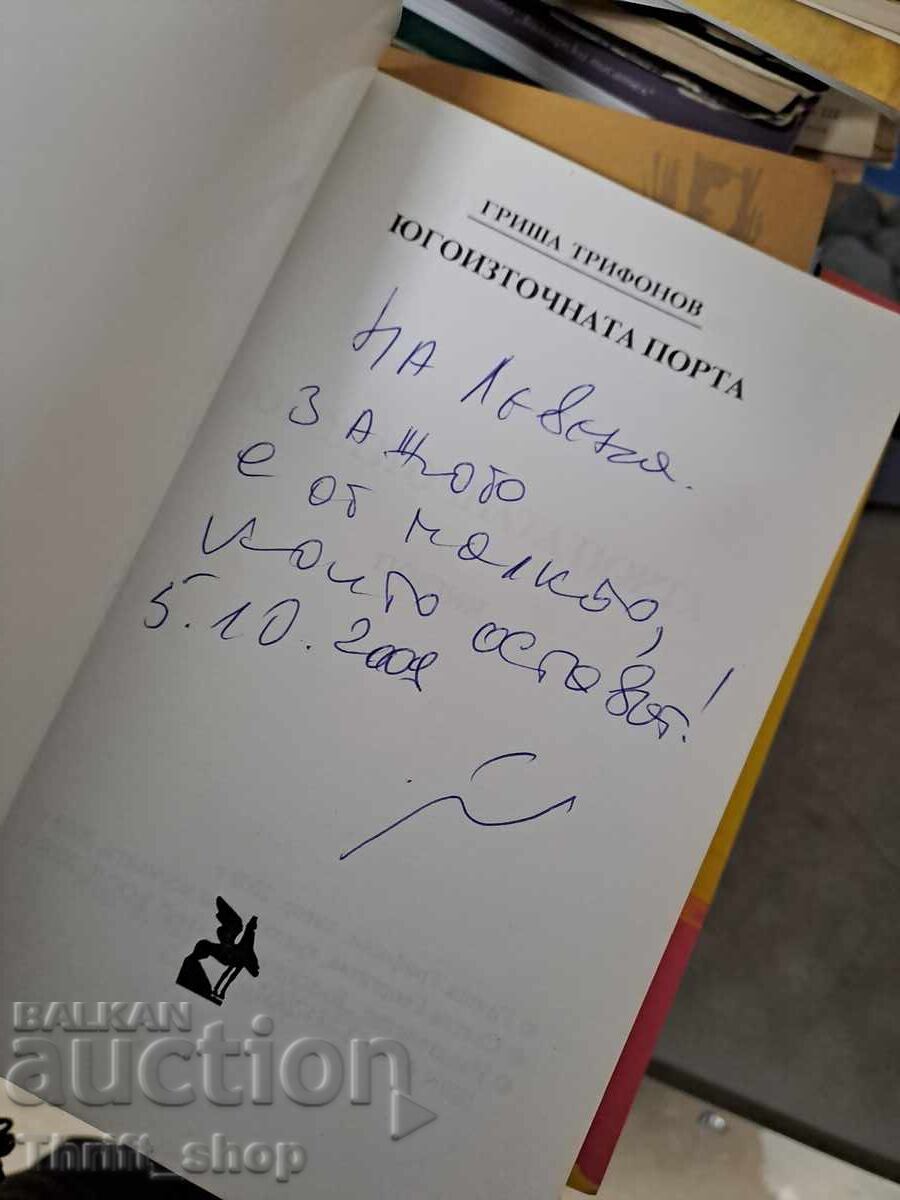 ГРИША ТРИФОНОВ
ЮГОИЗТОЧНАТА ПОРТА
НА
ЗАЩОТО
Е ОТ МАЛКОТО,
КОИТО ОСТАВАТ!
5.10.2009
BALKAN
auction
Thrift_shop